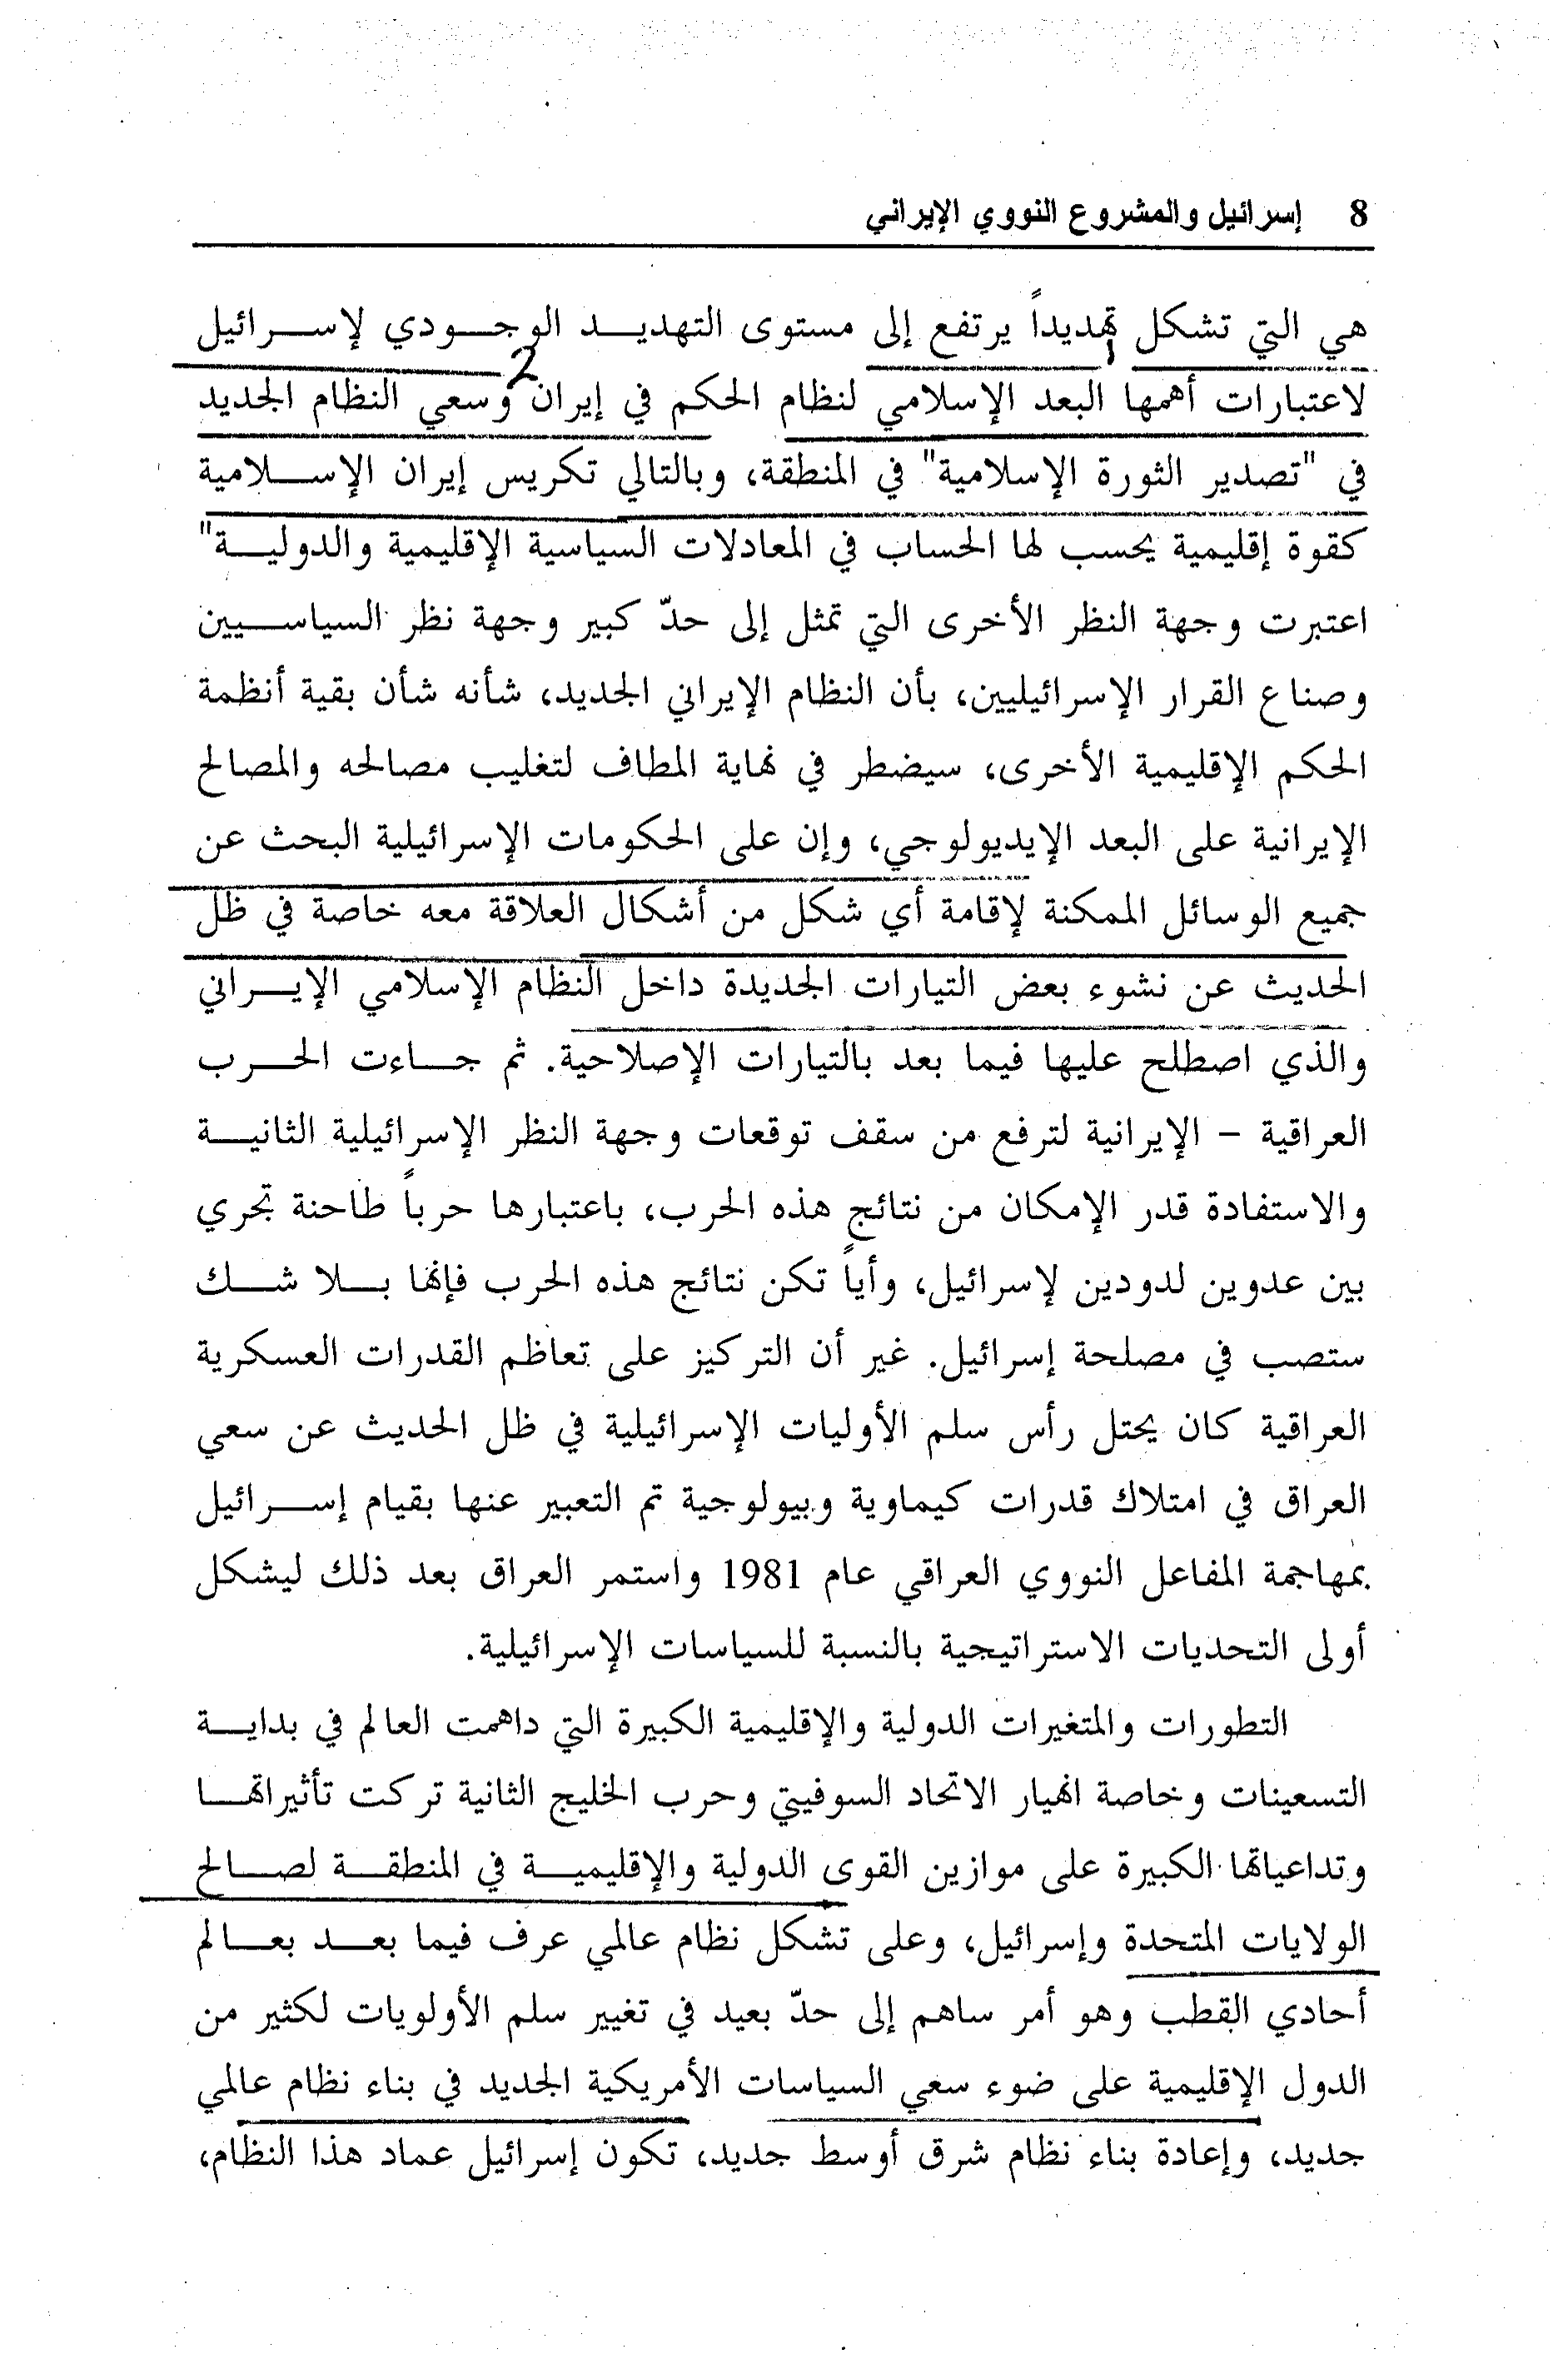 8 إسرائيل والمشروع النووي الإيراني
هي التي تشكل تهديداً يرتفع إلى مستوى التهديد الوجودي لإسرائيل
1
2
لاعتبارات أهمها البعد الإسلامي لنظام الحكم في إيران وسعي النظام الجديد
في "تصدير الثورة الإسلامية" في المنطقة، وبالتالي تكريس إيران الإسلامية
كقوة إقليمية يحسب لها الحساب في المعادلات السياسية الإقليمية والدولية"
اعتبرت وجهة النظر الأخرى التي تمثل إلى حدّ كبير وجهة نظر السياسيين
وصناع القرار الإسرائيليين، بأن النظام الإيراني الجديد، شأنه شأن بقية أنظمة
الحكم الإقليمية الأخرى، سيضطر في نهاية المطاف لتغليب مصالحه والمصالح
الإيرانية على البعد الإيديولوجي، وإن على الحكومات الإسرائيلية البحث عن
جميع الوسائل الممكنة لإقامة أي شكل من أشكال العلاقة معه خاصة في ظل
الحديث عن نشوء بعض التيارات الجديدة داخل النظام الإسلامي الإيراني
والذي اصطلح عليها فيما بعد بالتيارات الإصلاحية. ثم جاءت الحرب
العراقية - الإيرانية لترفع من سقف توقعات وجهة النظر الإسرائيلية الثانية
والاستفادة قدر الإمكان من نتائج هذه الحرب، باعتبارها حرباً طاحنة تجري
بين عدوين لدودين لإسرائيل، وأياً تكن نتائج هذه الحرب فإنها بلا شك
ستصب في مصلحة إسرائيل. غير أن التركيز على تعاظم القدرات العسكرية
العراقية كان يحتل رأس سلم الأوليات الإسرائيلية في ظل الحديث عن سعي
العراق في امتلاك قدرات كيماوية وبيولوجية تم التعبير عنها بقيام إسرائيل
بمهاجمة المفاعل النووي العراقي عام 1981 واستمر العراق بعد ذلك ليشكل
أولى التحديات الاستراتيجية بالنسبة للسياسات الإسرائيلية.
التطورات والمتغيرات الدولية والإقليمية الكبيرة التي داهمت العالم في بداية
التسعينات وخاصة انهيار الاتحاد السوفيتي وحرب الخليج الثانية تركت تأثيراتها
وتداعياتها الكبيرة على موازين القوى الدولية والإقليمية في المنطقة لصالح
الولايات المتحدة وإسرائيل، وعلى تشكل نظام عالمي عرف فيما بعد بعالم
أحادي القطب وهو أمر ساهم إلى حدّ بعيد في تغيير سلم الأولويات لكثير من
الدول الإقليمية على ضوء سعي السياسات الأمريكية الجديد في بناء نظام عالمي
جديد، وإعادة بناء نظام شرق أوسط جديد، تكون إسرائيل عماد هذا النظام،